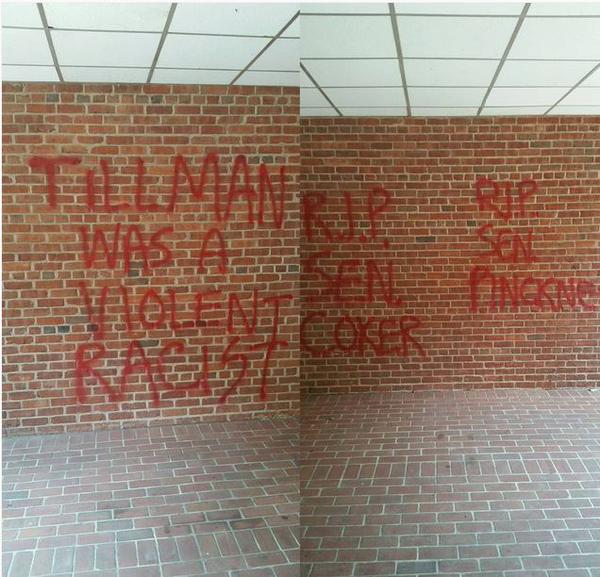 TILLMAN
WAS A
VIOLENT
RACIST
R.I.P.
SEN.
COKER
R.I.P.
SEN.
PINCKNE